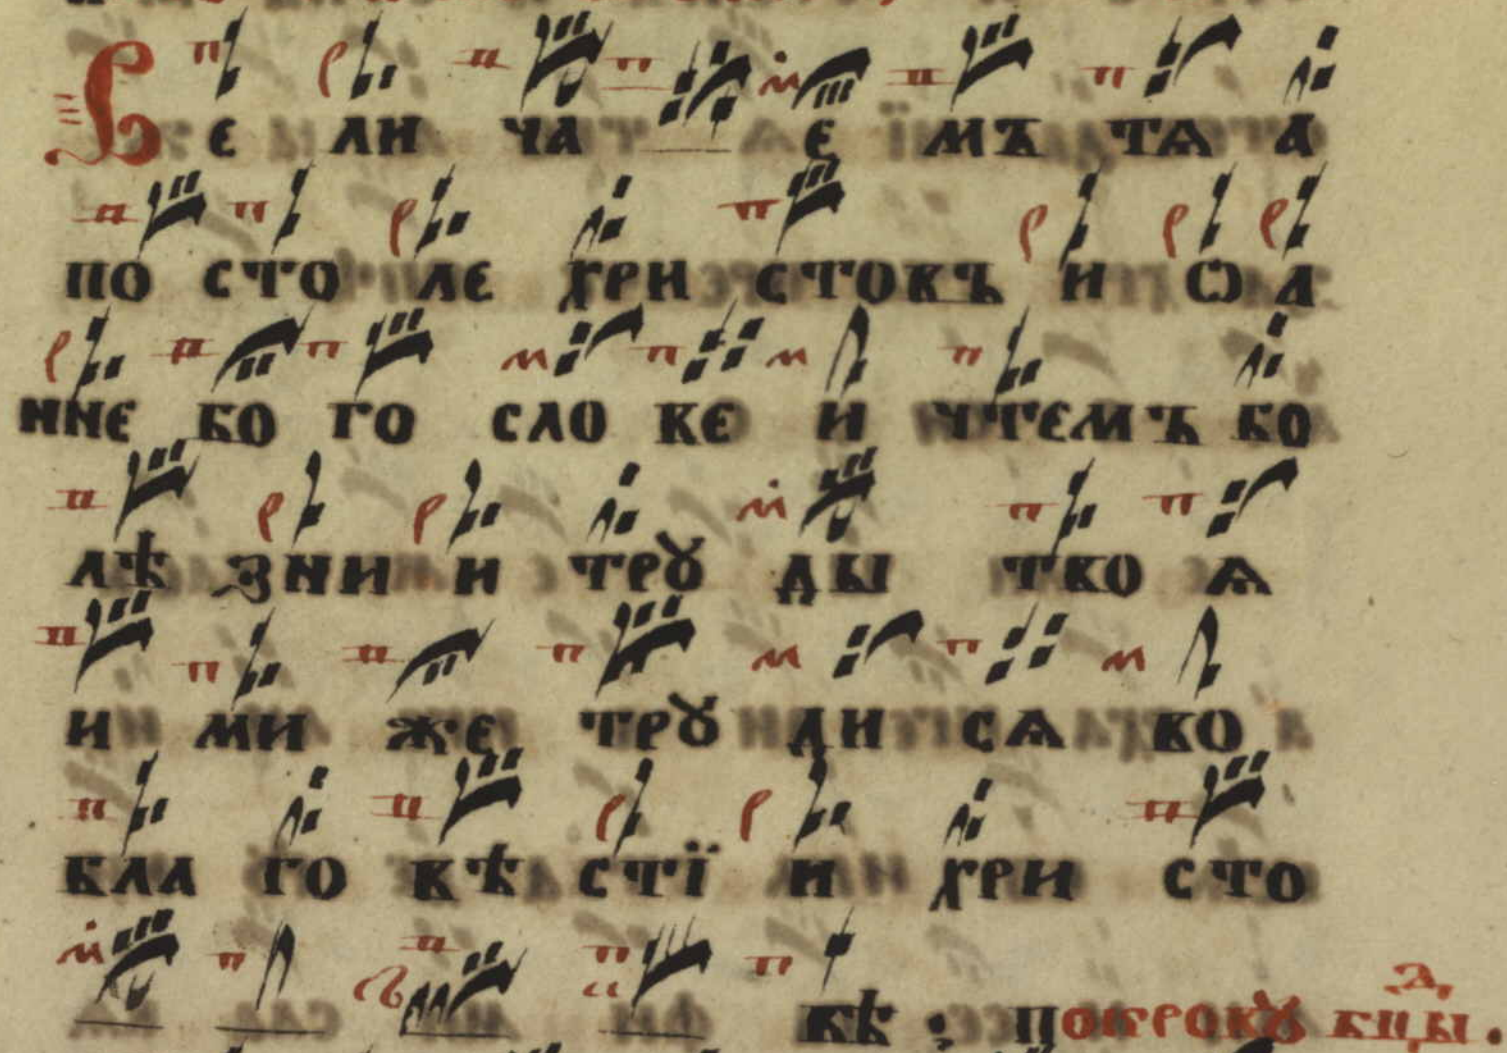 Ве ли ча е мъ тѧ а
по сто ле хри стовъ и ѡ а
нне бо го сло ве и чтемъ бо
лѣ зни и трꙋ ды тво ѧ
и ми же трꙋ ди сѧ во
бла го вѣ стї и хри сто
вѣ : П